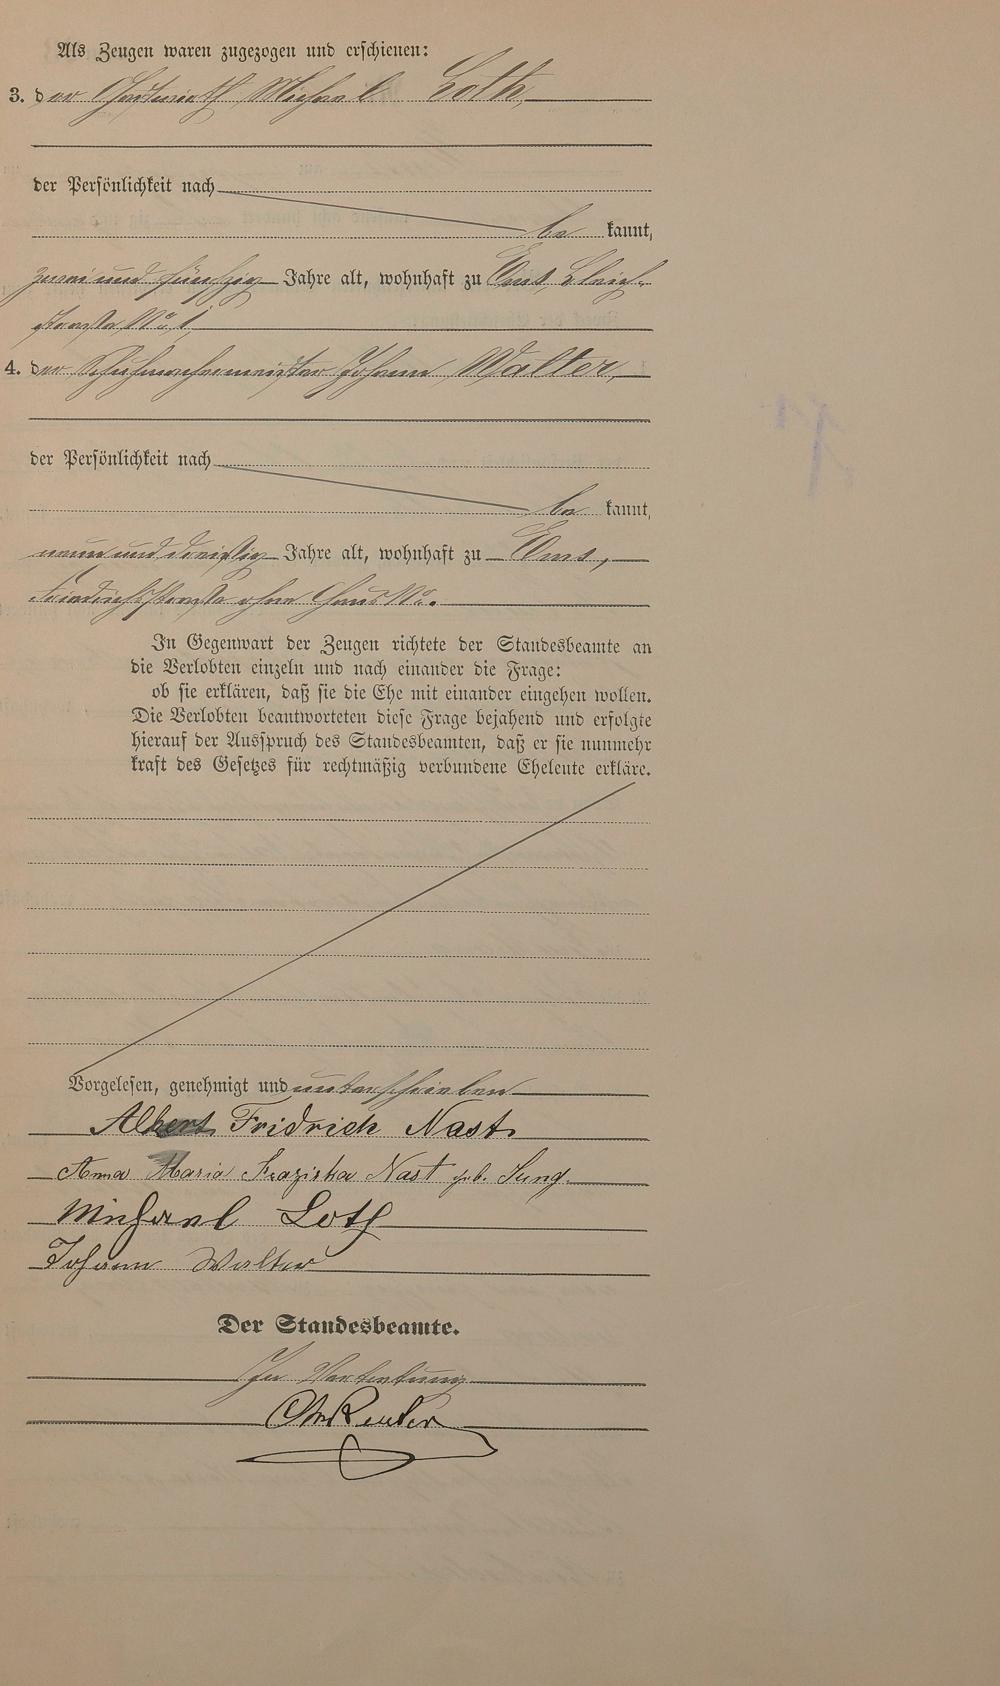 Als Zeugen waren zugezogen und erschienen:
3. der Gastwirth Michael Loth,
der Persönlichkeit nach
be kannt,
zwei und fünfzig Jahre alt, wohnhaft zu Ems, Bleich-
straße No. 1,
4. der Schuhmachermeister Johann Walter,
der Persönlichkeit nach
be kannt,
neun und dreißig Jahre alt, wohnhaft zu Ems,
Friedrichsstraße ohne Haus No.
In Gegenwart der Zeugen richtete der Standesbeamte an
die Verlobten einzeln und nach einander die Frage:
ob sie erklären, daß sie die Ehe mit einander eingehen wollen.
Die Verlobten beantworteten diese Frage bejahend und erfolgte
hierauf der Ausspruch des Standesbeamten, daß er sie nunmehr
kraft des Gesetzes für rechtmäßig verbundene Eheleute erkläre.
Vorgelesen, genehmigt und unterschrieben
Albert Fridrich Nast
Anna Maria Fraziska Nast geb. Jung.
Michael Loth
Johann Walter
Der Standesbeamte.
In Vertretung
Reuter